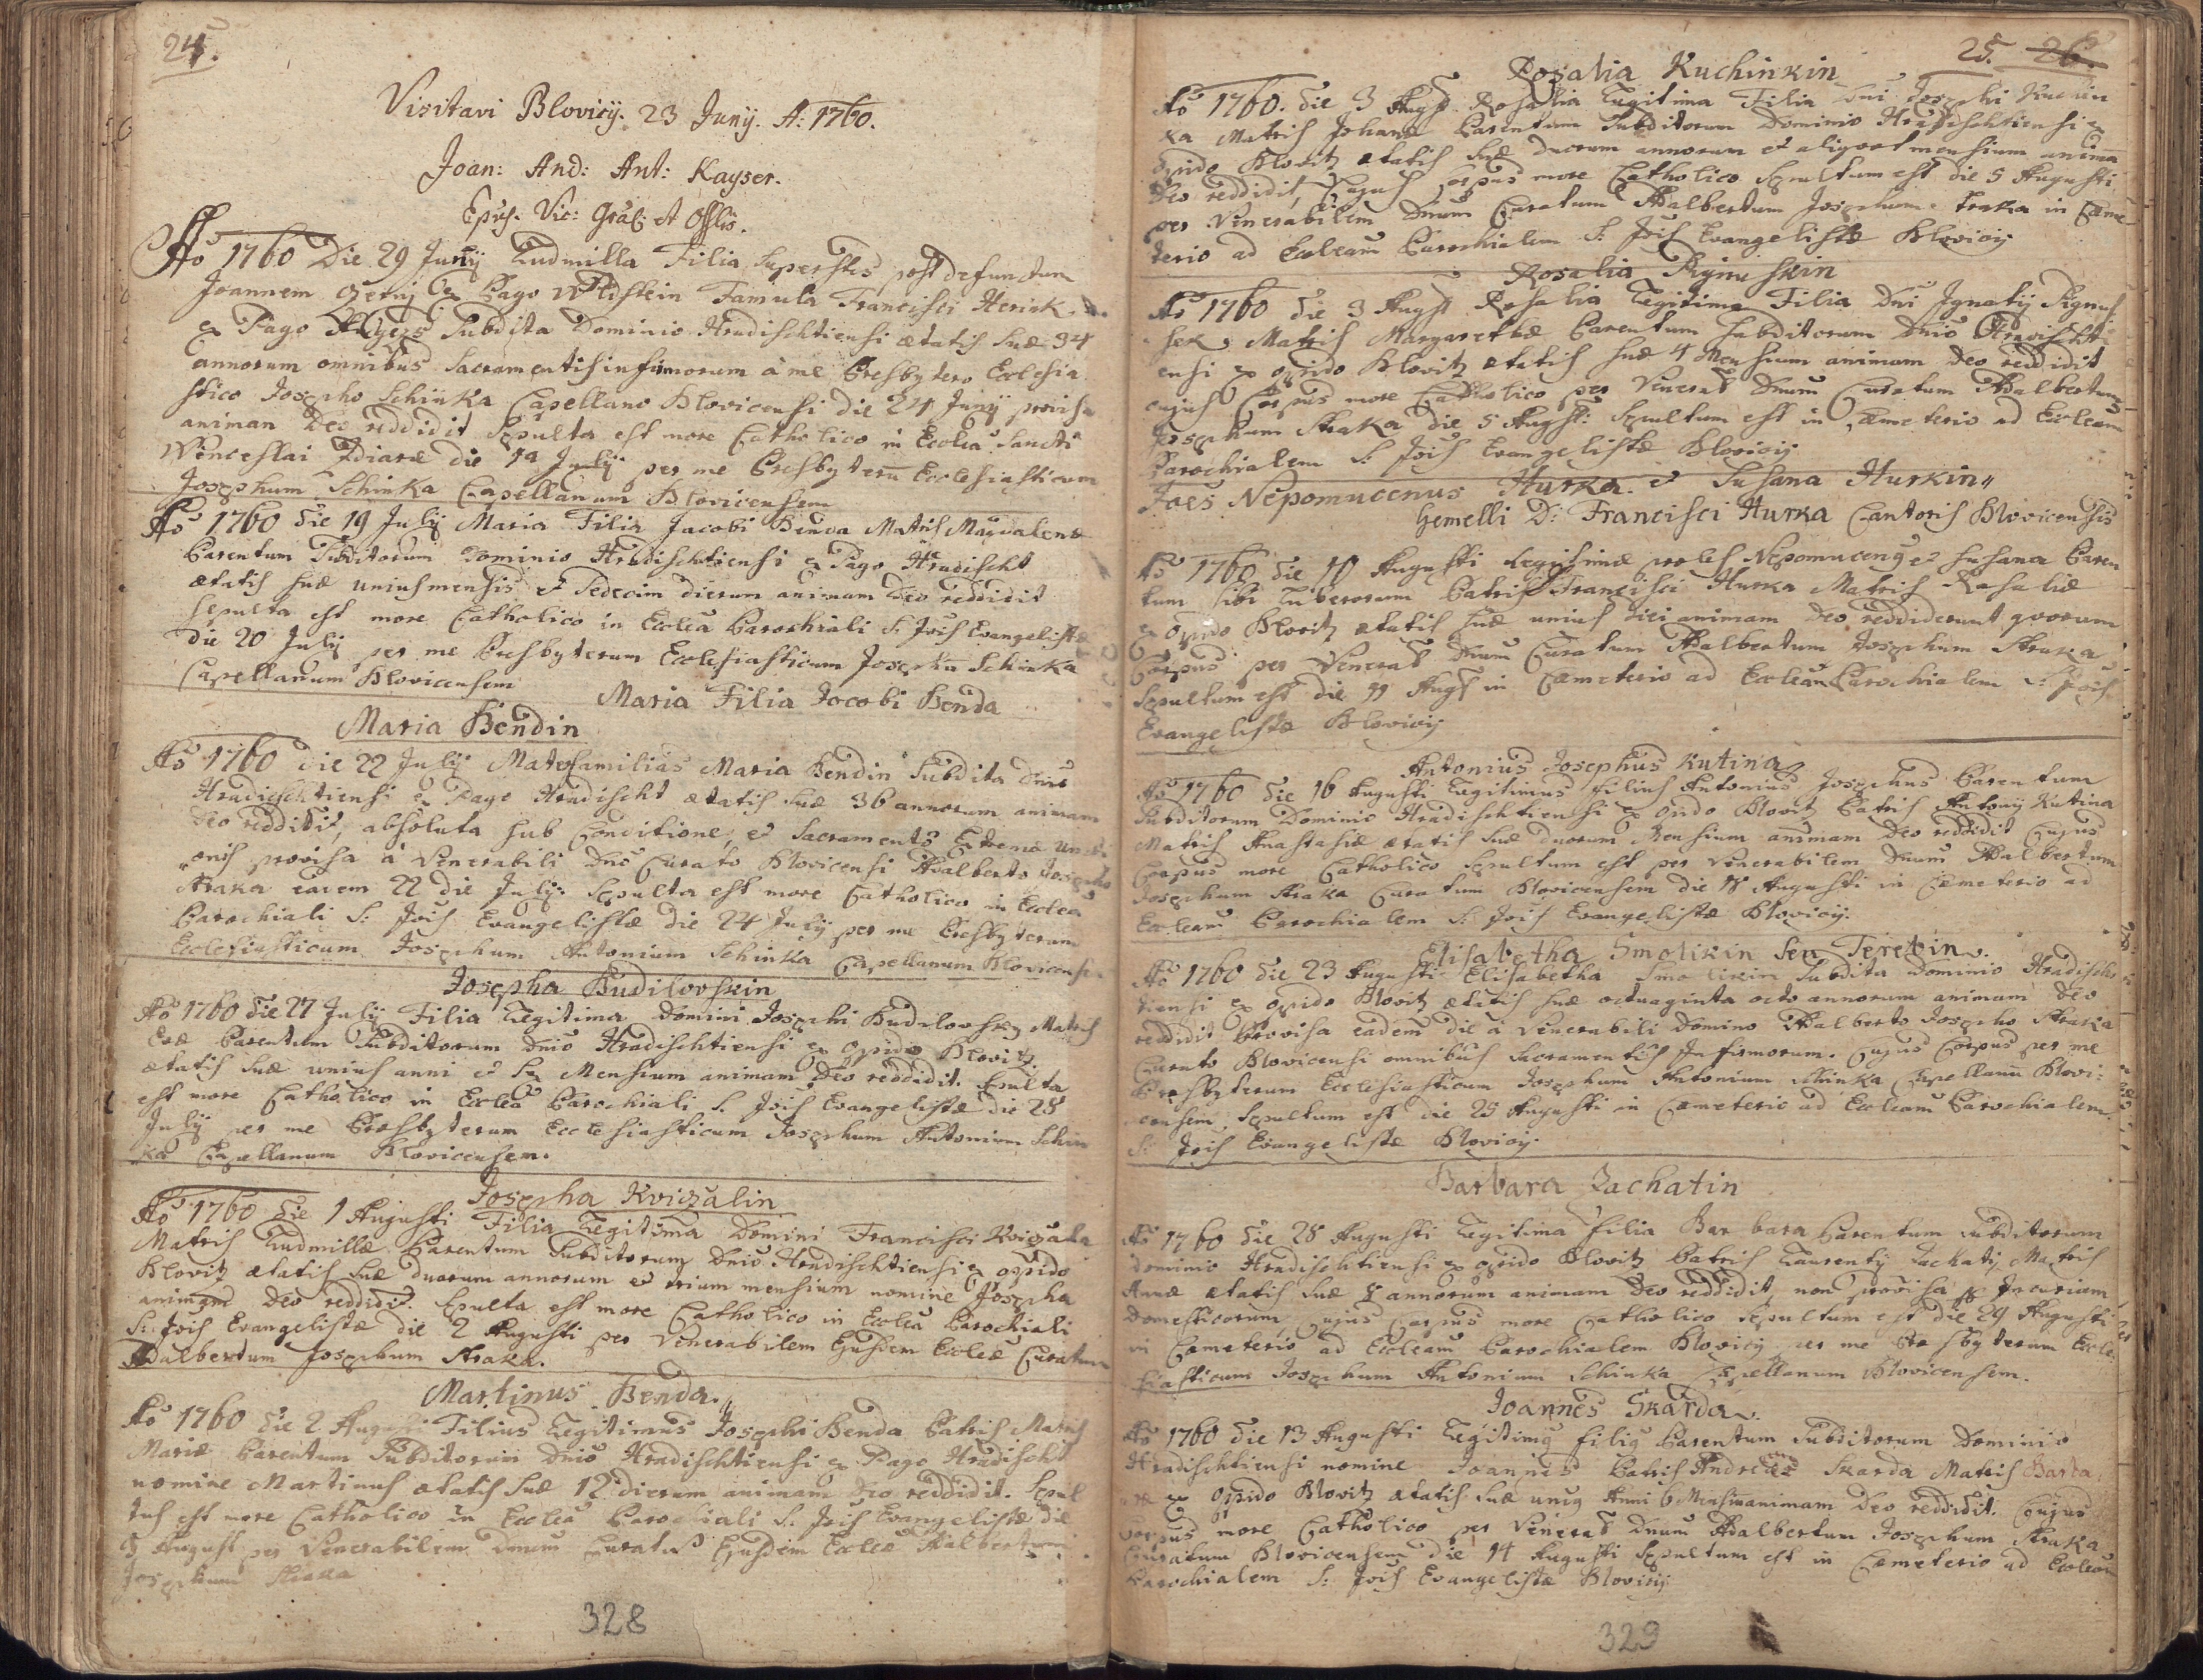 24.
Visitavi Blovicij. 23 Junij. A: 1760.
Joan: And: Ant: Kayser.
Epus. Vic: Gräl: et Offlis.
Ao 1760 Die 29 Junij Ludmilla Filia Superstes post defunctum
Joannem ex Pago Wildstein Famula Francisci Herink
ex Pago Subdita Dominio Hradischtiensi ætatis suæ 34
annorum omnibus Sacramentis infirmorum à me Presbytero Ecclesia
stico Josepho Schinka Capellano Blovicensi die 24 Junij provisa
animan Deo reddidit Sepulta est more Catholico in Ecclea Sancti
Wenceslai Zdiaræ die 1a Julij per me Presbyterū Ecclesiasticum
Josephum Schinka Capellanum Blovicensem
Ao 1760 die 19 Julij Maria Filia Jacobi Benda Matris Magdalenæ
Parentum Subditorum Dominio Hradischtiensi ex Pago Hradischt
ætatis suæ unius mensis et Sedecim dierum animam Deo reddidit
sepulta est more Catholico in Ecclea Parochiali S: Jois Evangelistæ
die 20 Julij per me Presbyterum Ecclesiasticum Josephū Schinka
Capellanum Blovicensem
Maria Filia Jacobi Benda
Maria Bendin
Ao 1760 die 22 Julij Materfamilias Maria Bendin Subdita Dnio
Hradischtiensi ex Pago Hradischt ætatis suæ 36 annorum animam
Deo reddidit, absoluta sub Conditione, et Sacramento Extremæ Uncti
onis provisa à Venerabili Dno Curato Blovicensi Adalberto Josepho
Straka eadem 22 die Julij: Sepulta est more Catholico in Ecclea
Parochiali S: Jois Evangelistæ die 24 Julij per me Presbyterum
Ecclesiasticum Josephum Antonium Schinka Capellanum Blovicensem
Josepha Budilovskin
Ao 1760 die 27 Julij Filia Legitima Domini Josephi Budilovsky Matris
Evæ Parentum Subditorum Dnio Hradischtiensi ex Opido Blovitz
ætatis suæ unius anni et Sex Mensium animam Deo reddidit. Sepulta
est more Catholico in Ecclea Parochiali S. Jois Evangelistæ die 28
Julij per me Presbyterum Ecclesiasticum Josephum Antonium Schin
ka Capellanum Blovicensem.
Josepha Kviczalin
Ao 1760 die 1 Augusti Filia Legitima Domini Francisci Kviczala
Matris Ludmillæ Parentum Subditorum Dnio Hradischtiensi ex oppido
Blovitz ætatis suæ duorum annorum et trium mensium nomine Josepha
animam Deo reddidit. Sepulta est more Catholico in Ecclea Parochiali
S: Jois Evangelistæ die 2 Augusti per Venerabilem Ejusdem Eccleæ Curatum
Adalbertum Josephum Straka.
Martinus Benda.
Ao 1760 die 2 Augusti Filius Legitimus Josephi Benda Patris Matris
Mariæ Parentum Subditorum Dnio Hradischtiensi ex Pago Hradischt
nomine Martinus ætatis suæ 12 dierum animam Deo reddidit. Sepul
tus est more Catholico in Ecclea Parochiali S: Jois Evangelistæ die
August per Venerabilem Dnum Curatū Ejusdem Eccleæ Adalbertum
Josephum Straka
328
25. 26.
Rosalia Kuchinkin
Ao 1760. die 3 Augst Rosalia Legitima Filia Dni Josephi Kuchin
ka Matris Johana Parentum Subditorum Dominio Hradischtiensi ex
Opido Blovitz ætatis suæ duorum annorum et aliqvot mensium animā
Deo reddidit, Cujus Corpus more Catholico Sepultum est die 5 Augusti
per Venerabilem Dnum Curatum Adalbertum Josephum Straka in Cæme
terio ad Eccleam Parochialem S: Jois Evangelistæ Blovicij
Rosalia
Ao 1760 die 3 Augst Rosalia Legitima Filia Dni Ignatij
sek Matris Margarethæ Parentum subditorum Dnio Hradischti
ensi ex opido Blovitz ætatis suæ 4 Mensium animam Deo reddidit
cujus Corpus more Catholico per Venerab Dnum Curatum Adalbertum
Josephum Straka die 5 Augst: Sepultum est in Cæmeterio ad Eccleam
Parochialem S: Jois Evangelistæ Blovicij
Joes Nepomucenus Hurka. et Susana Hurkin
Gemelli D: Francisci Hurka Cantoris Blovicensis
Ao 1760 die 10 Augusti Legitimæ proles Nepomucenq et Susana Paren
tum sibi Liberorum Patris Francisci Hurka Matris Rosaliæ
ex Opido Blovitz ætatis suæ unius diei animam Deo reddiderunt qvorum
Corpus per Venerab Dnum Curatum Adalbertum Josephum Straka
Sepultum est die 11 Augst in Cæmeterio ad Eccleam Parochialem S: Jois
Evangelistæ Blovicij
Antonius Josephus Kutina
Ao 1760 die 16 Augusti Legitimus filius Antonius Josephus Parentum
Subditorum Dominio Hradischtiensi ex Opido Blovitz Patris Antonij Kutina
Matris Anastasiæ ætatis suæ duorum Mensium animam Deo reddidit Cujus
Corpus more Catholico Sepultum est per Venerabilem Dnum Adalbertum
Josephum Straka Curatum Blovicensem die 18 Augusti in Cæmeterio ad
Eccleam Parochialem S: Jois Evangelistæ Blovicij.
Elisabetha Smolikin Seu Terebin
Ao 1760 die 23 Augusti Elisabetha Smolikin Subdita Dominio Hradisch
tiensi ex opido Blovitz ætatis suæ octuaginta octo annorum animam Deo
reddidit Provisa eadem die à Venerabili Domino Adalberto Josepho Straka
Curato Blovicensi omnibus Sacramentis Infirmorum. Cujus Corpus per me
Presbyterum Ecclesiasticum Josephum Antonium Schinka Capellanū Blovi-
censem, Sepultum est die 25 Augusti in Cæmeterio ad Eccleam Parochialem
S: Jois Evangelistæ Blovicij.
Barbara Zachatin
Ao 1760 die 28 Augusti Legitima filia Barbara Parentum Subditorum
Dominio Hradischtiensi ex opido Blovitz Patris Laurentij Zachatj Matris
Annæ ætatis suæ 8 annorum animam Deo reddidit, non provisa ob Incuriam
Domesticorum, cujus corpus more Catholico Sepultum est die 29 Augusti
in Cæmeterio ad Eccleam Parochialem Blovicij per me Presbyterum Eccle-
siasticum Josephum Antonium Schinka Capellanum Blovicensem.
Joannes Skarda.
Ao 1760 die 13 Augusti Legitimq filiq Parentum Subditorum Dominio
Hradischtiensi nomine Joannes Patris Andreæ Skarda Matris Barba
ræ ex Opido Blovitz ætatis suæ uniq Anni 6 Mensiū animam Deo reddidit. Cujus
corpus more Catholico per Venerab Dnum Adalbertum Josephum Straka
Curatum Blovicensem die 14 Augusti Sepultum est in Cæmeterio ad Eccleam
Parochialem S: Jois Evangelistæ Blovicij
329